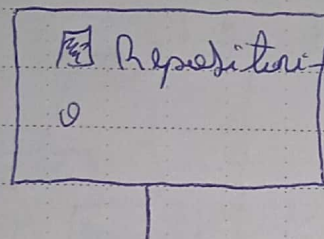 Repositori-
o